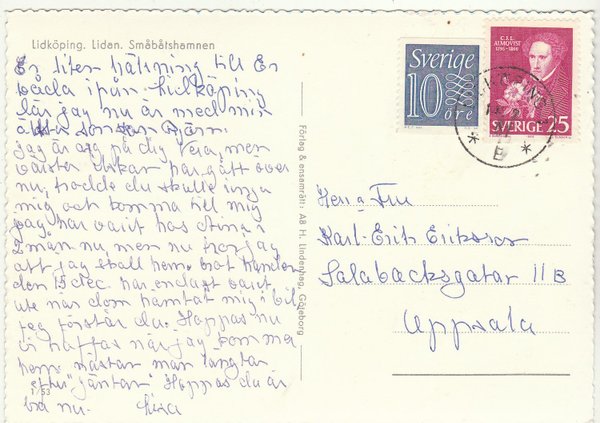 Lidköping. Lidan. Småbåtshamnen
En liten hälsning till Er
båda ifrån Lidköping
där jag nu är med min
äldsta son
jag är arg på dig Vera, men
hoppas ilskan har gått över
nu, trodde du skulle ringa
mig och komma till mig
jag har varit hos Anna i
2 mån nu, men nu tror jag
att jag skall hem. bort handen
den 15 dec. har endast varit
ute när dom hämtat mig i bil
jag förstår du. Hoppas nu
vi träffas när jag kommer
hem. nästan man längtar
efter "jäntan" Hoppas du är
bra nu.
1/53
Förlag & ensamrätt: AB H. Lindenhag, Göteborg
Sverige
10
öre
C.J.L.
ALMQVIST
1793-1866
SVERIGE 25
B
Herr o Fru
Karl-Erik Eriksson
Salabacksgatan 11 B
Uppsala